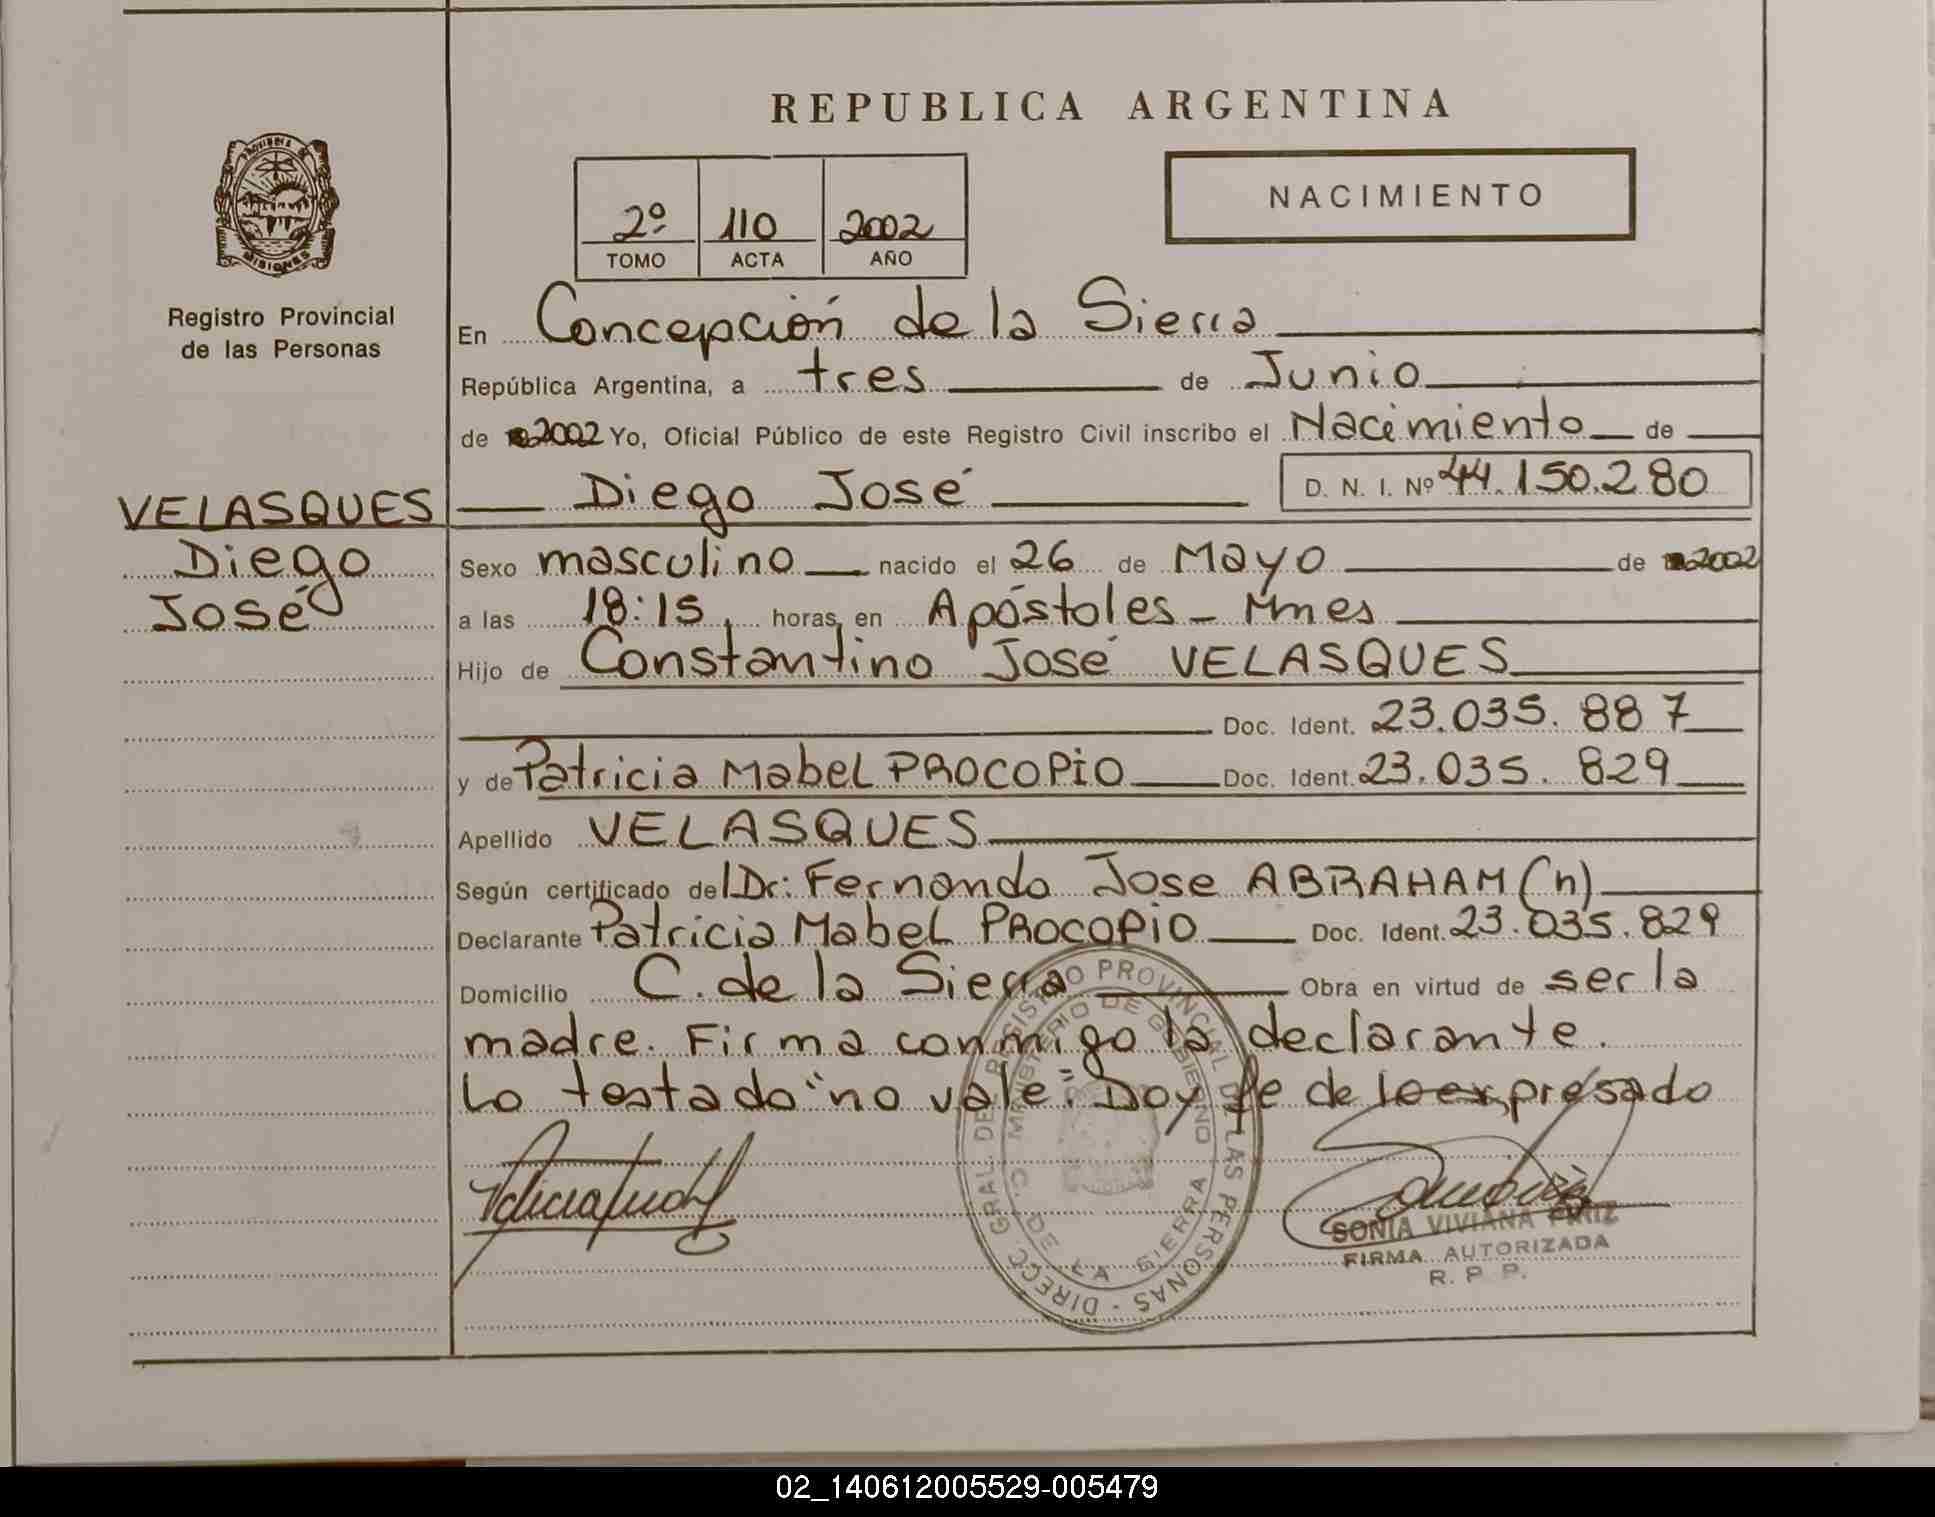 REPUBLICA ARGENTINA
NACIMIENTO
2º 110 2002
TOMO ACTA AÑO
PROVINCIA DE
MISIONES
Registro Provincial
de las Personas
VELASQUES
Diego
José
En Concepción de la Sierra
República Argentina, a tres de Junio
de 2002 Yo, Oficial Público de este Registro Civil inscribo el Nacimiento de
Diego José D. N. I. Nº 44.150.280
Sexo masculino nacido el 26 de Mayo de 2002
a las 18:15 horas en Apóstoles - Mnes
Hijo de Constantino José VELASQUES
Doc. Ident. 23.035.887
y de Patricia Mabel PROCOPIO Doc. Ident. 23.035.829
Apellido VELASQUES
Según certificado del Dr: Fernando Jose ABRAHAM (h)
Declarante Patricia Mabel PROCOPIO Doc. Ident. 23.035.829
Domicilio C. de la Sierra Obra en virtud de ser la
madre. Firma conmigo la declarante.
Lo testado "no vale". Doy fe de lo expresado
DIRECC. GRAL. DEL REGISTRO PROVINCIAL DE LAS PERSONAS -
MINISTERIO DE GOBIERNO
C. DE LA SIERRA
SONIA VIVIANA
FIRMA AUTORIZADA
R. P. P.
02_140612005529-005479